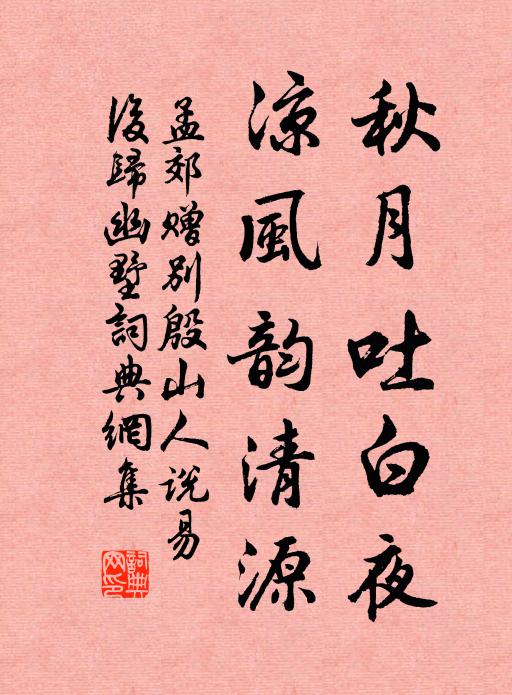 秋月吐白夜
涼風韵清源
孟郊贈別殷山人说易
後歸幽墅詞典網集
詞典网印